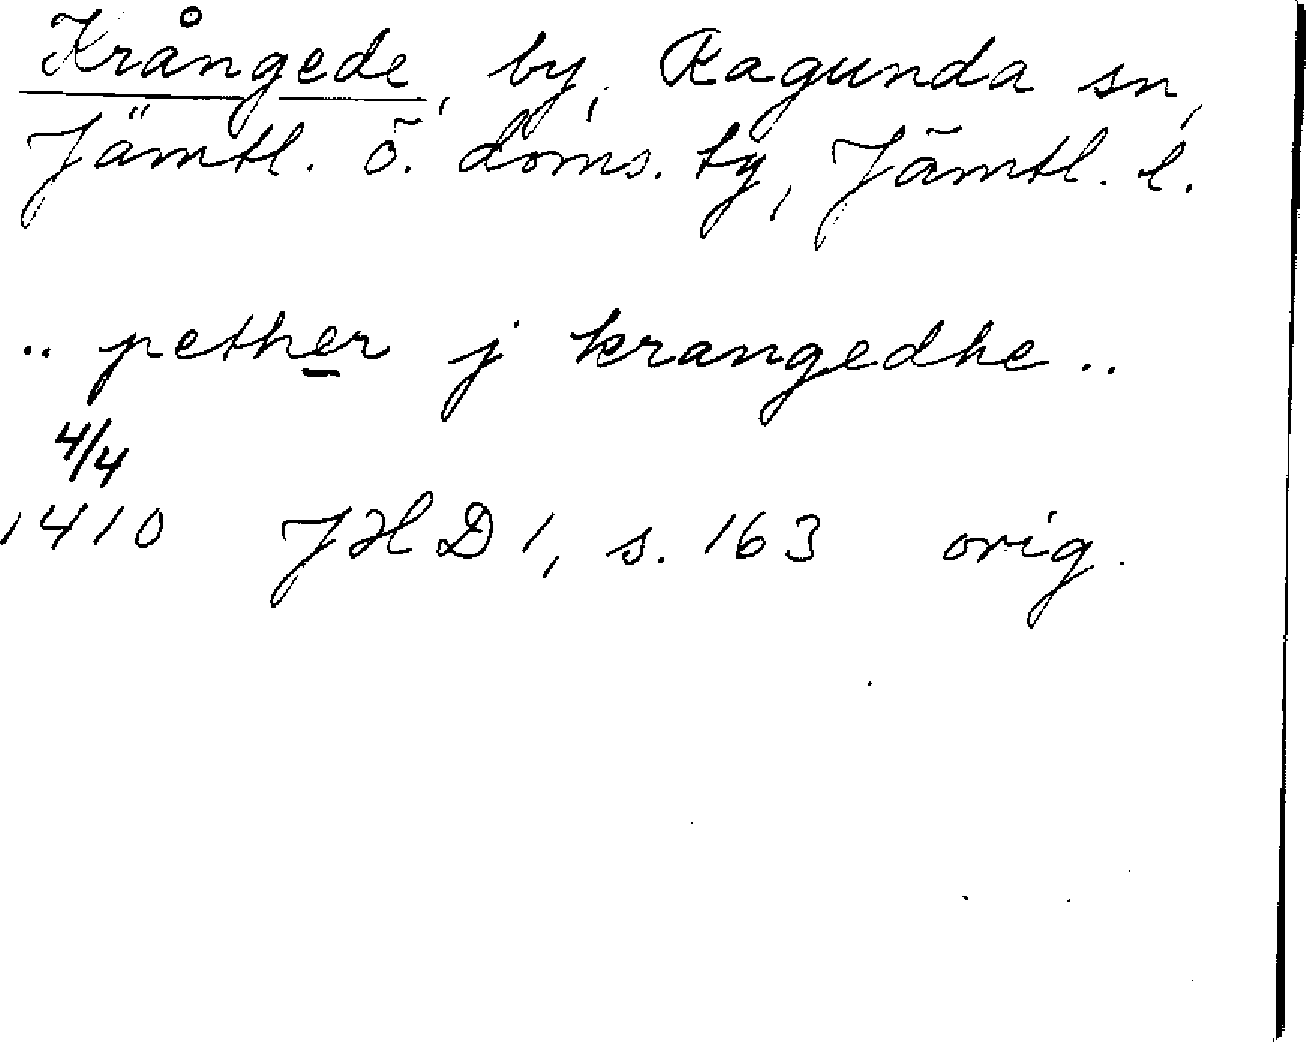 Krångede, by, Ragunda sn,
Jämtl. ö. doms. tg, Jämtl. l.
.. pether j krangedhe ..
4/4
1410 JHD 1, s. 163 orig.